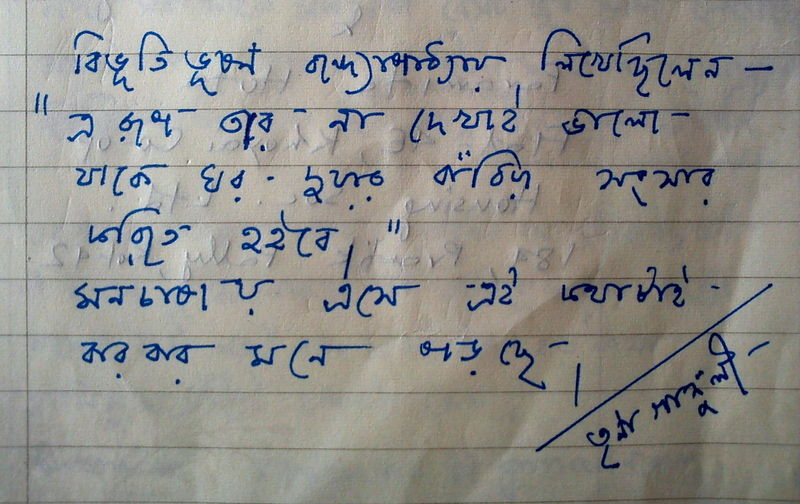 বিভূতি ভূষণ বন্দ্যোপাধ্যায় লিখেছিলেন —
"এ রূপ তার না দেখাই ভালো
যাকে ঘর-দুয়ার বাঁধিয়া সংসার
করিতে হইবে।"
মনচাষায় এসে এই কথাটাই
বারবার মনে পড়ছে।
তৃষা গাঙ্গুলী